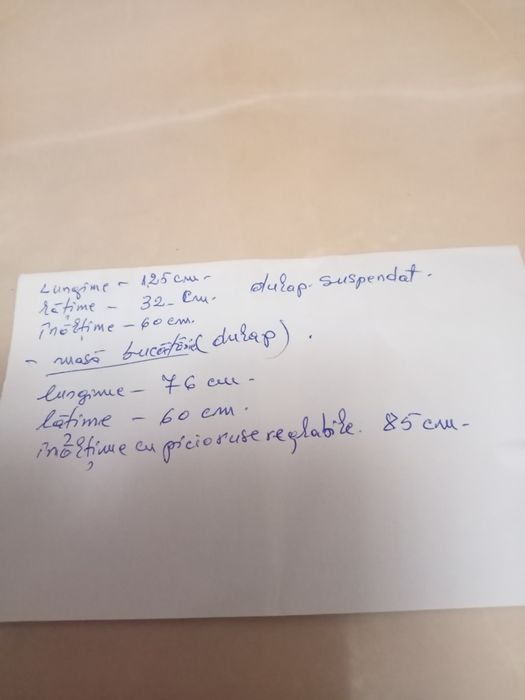 Lungime - 125 cm.
lățime - 32 cm. dulap suspendat.
înălțime - 60 cm.
- masă bucătărie (dulap).
lungime - 76 cm.
lățime - 60 cm.
înălțime cu piciorușe reglabile. 85 cm.